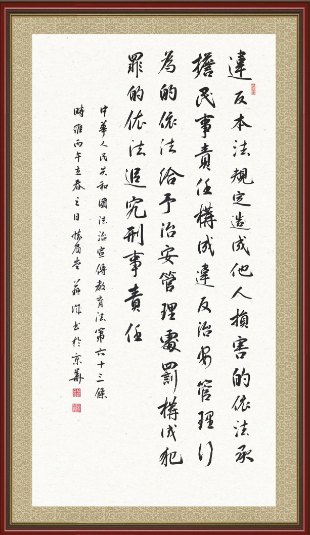 違反本法規定造成他人損害的依法承
擔民事責任構成違反治安管理行
為的依法給予治安管理處罰構成犯
罪的依法追究刑事責任
中華人民共和國法治宣傳教育法第六十三條
時維丙午立春之日 書於京華